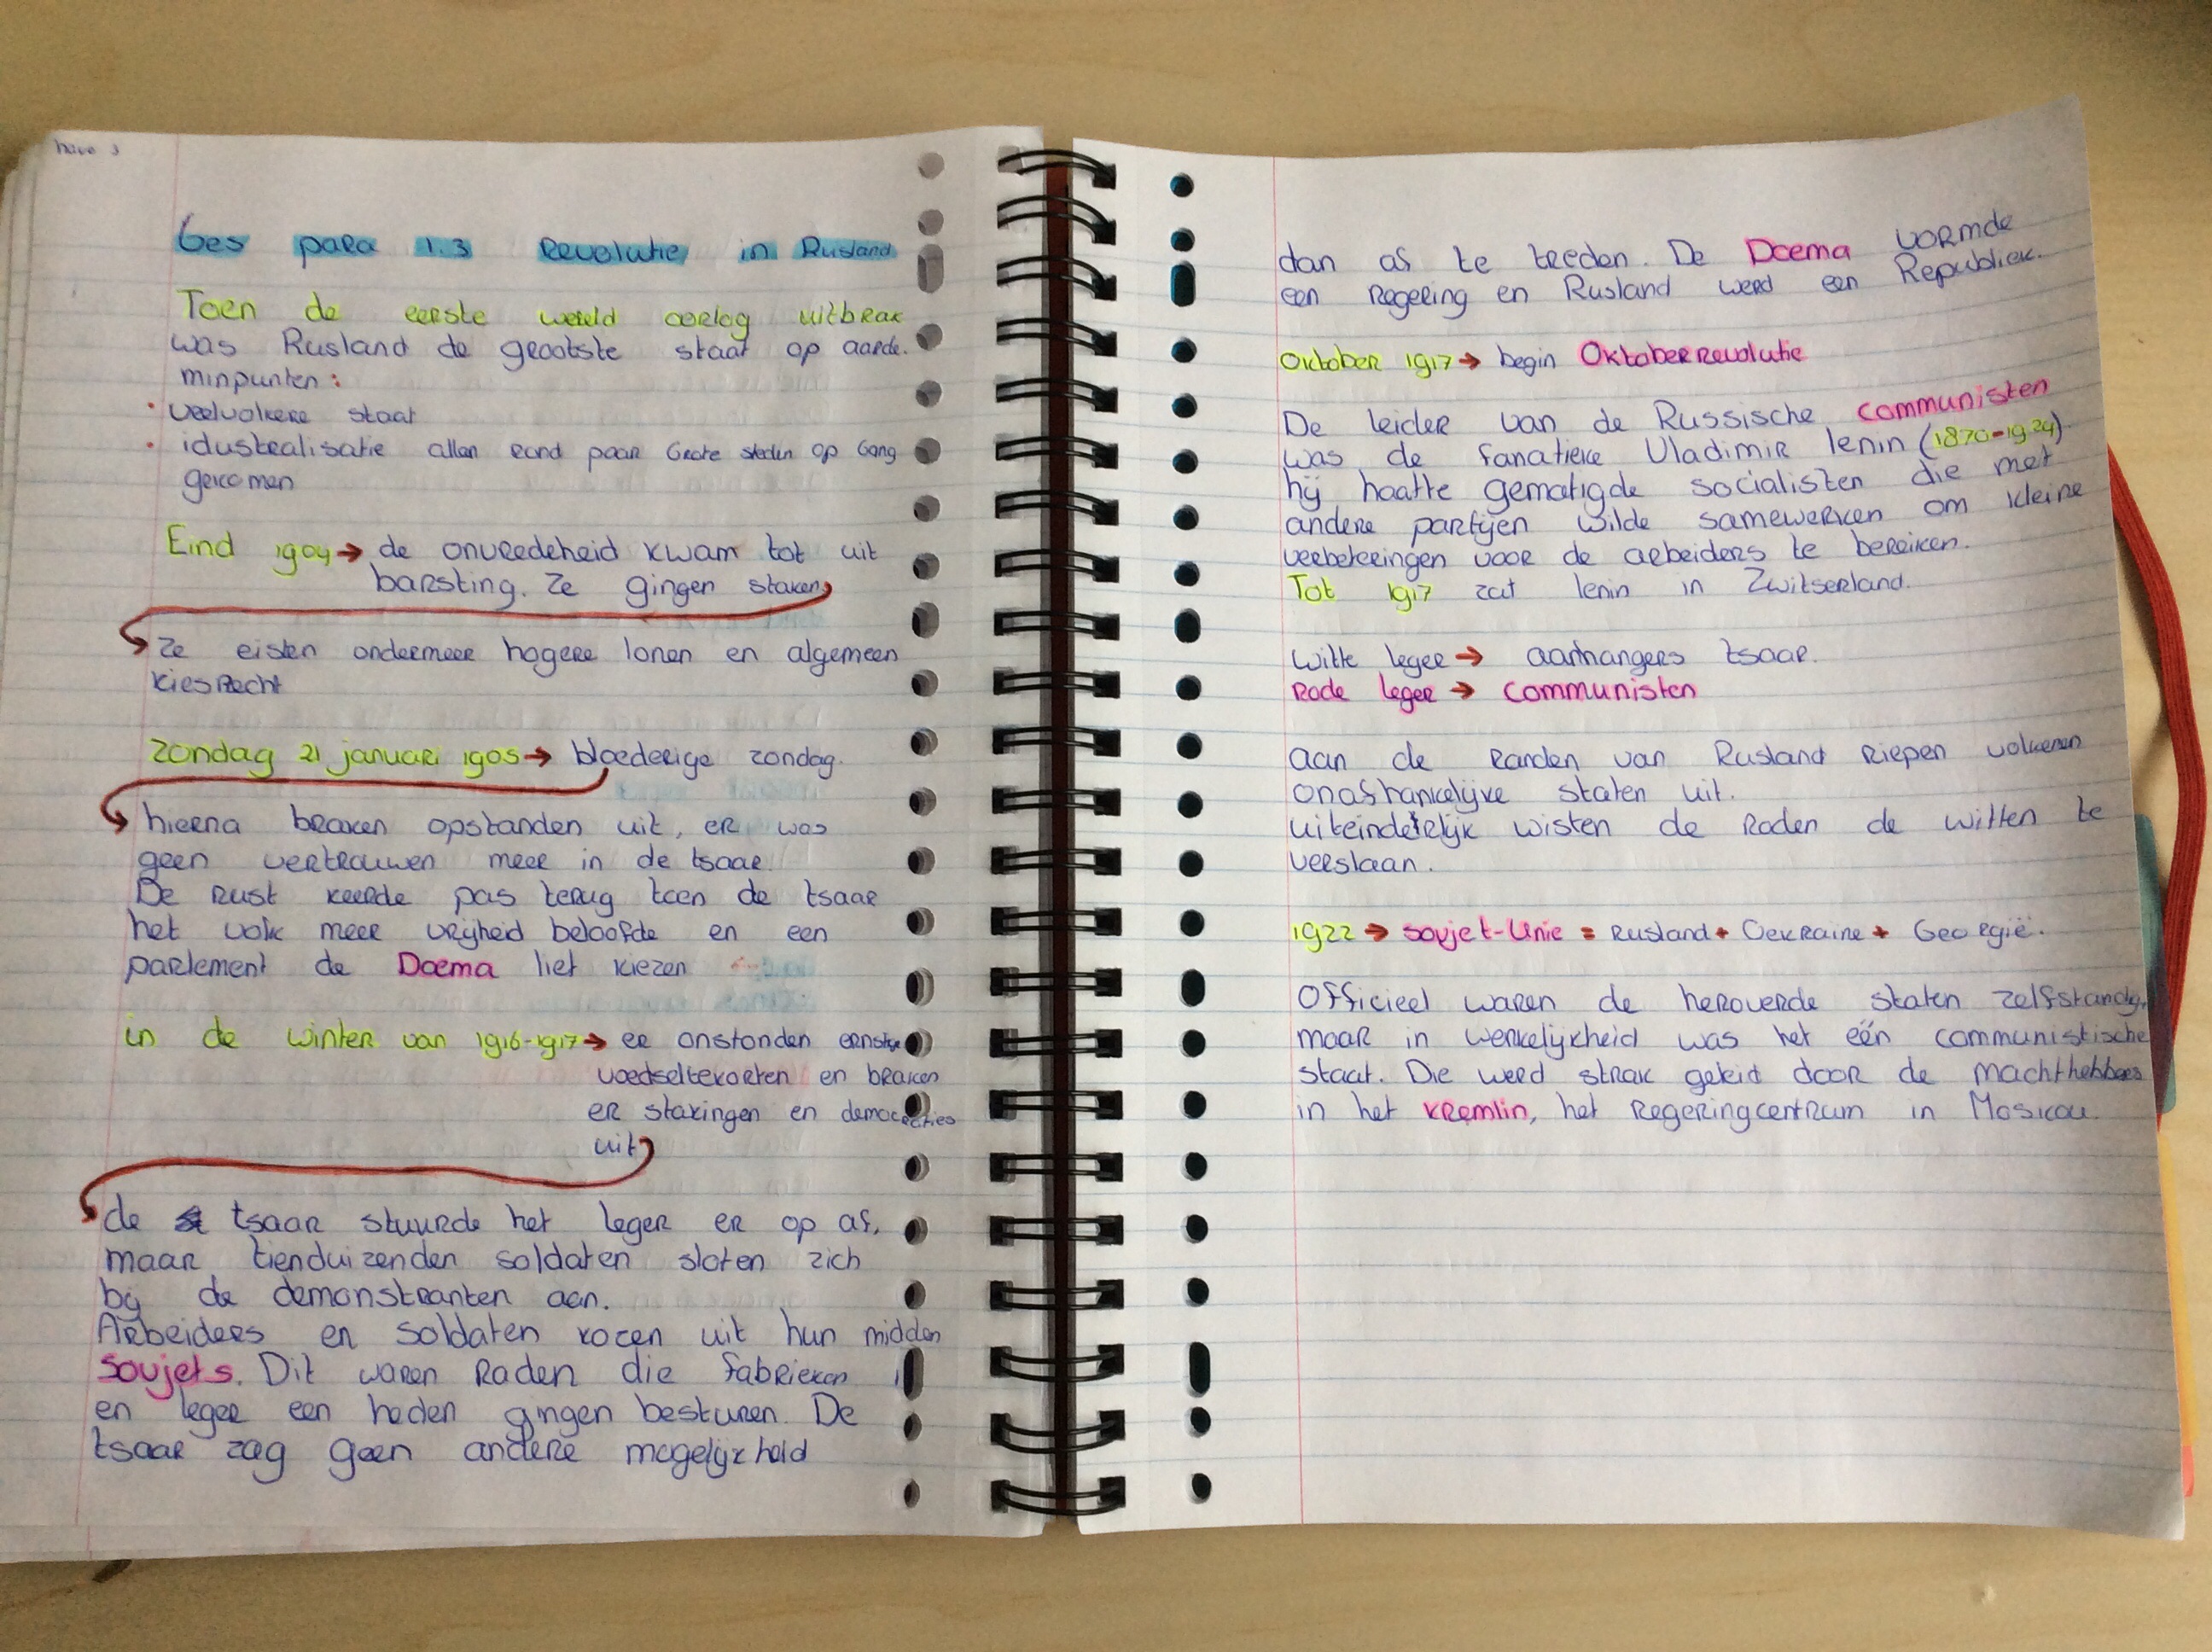 havo 3
Ges para 1.3 Revolutie in Rusland
Toen de eerste wereld oorlog uitbrak
was Rusland de grootste staat op aarde.
minpunten:
• veelvolkere staat
• idustealisatie allen rond paar Grote steden op Gang
gekomen
Eind 1904 → de onvredeheid kwam tot uit
barsting. Ze gingen staken
Ze eisten ondermeer hogere lonen en algemeen
kiesrecht
Zondag 21 januari 1905 → bloederige zondag.
hierna braken opstanden uit, er was
geen vertrouwen meer in de tsaar.
De rust keerde pas terug toen de tsaar
het volk meer vrijheid beloofde en een
parlement de Doema liet kiezen
in de winter van 1916-1917 → er onstonden ernstige
voedseltekorten en braken
er stakingen en democraties
uit
de tsaar stuurde het leger er op af,
maar tienduizenden soldaten sloten zich
bij de demonstranten aan.
Arbeiders en soldaten kozen uit hun midden
Sovjets. Dit waren Raden die fabrieken
en leger een heden gingen besturen. De
tsaar zag geen andere mogelijkheid
dan af te treeden. De Doema vormde
een regering en Rusland werd een Republiek.
Oktober 1917 → begin Oktoberrevolutie
De leider van de Russische communisten
was de fanatieke Vladimir lenin (1870-1924)
hij haatte gematigde socialisten die met
andere partijen wilde samewerken om kleine
verbeteringen voor de arbeiders te bereiken.
Tot 1917 zat lenin in Zwitserland.
Witte leger → aanhangers tsaar.
Rode leger → Communisten
aan de randen van Rusland riepen volkeren
onafhankelijke staten uit.
uiteindelijk wisten de roden de witten te
verslaan.
1922 → Sovjet-Unie = Rusland + Oekraine + Georgië.
Officieel waren de heroverde staten zelfstandig,
maar in werkelijkheid was het één communistische
staat. Die werd strak geleid door de machthebbers
in het Kremlin, het regeringcentrum in Moskou.